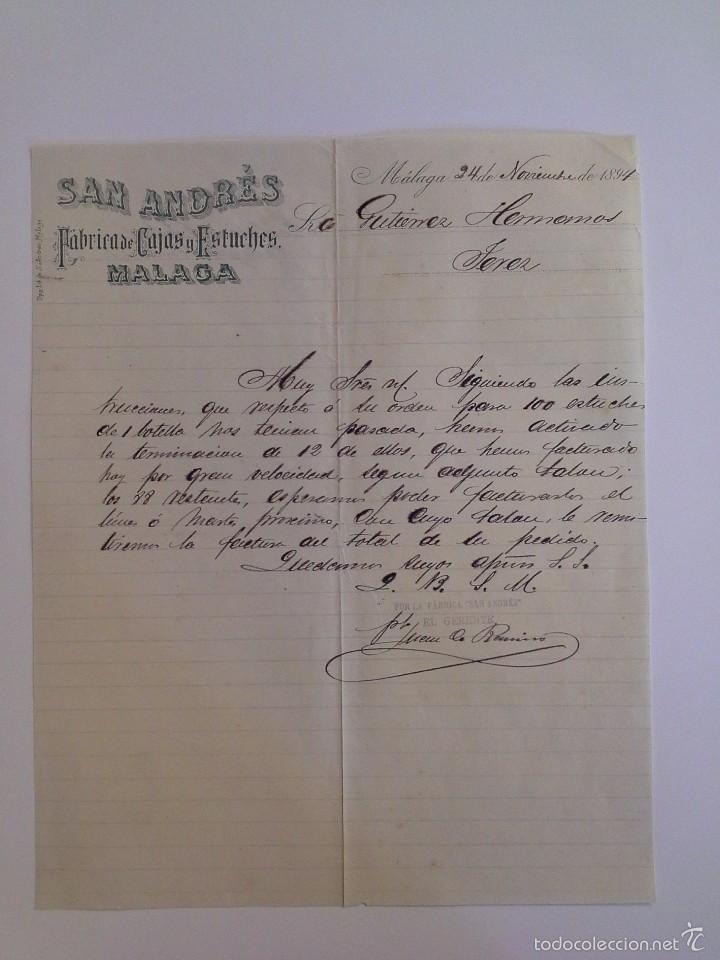 SAN ANDRÉS
Fábrica de Cajas y Estuches.
MALAGA
Málaga 24 de Noviembre de 1894
Sres Gutierrez Hermanos
Jerez
Muy Sres ns/. Siguiendo las ins-
trucciones, que respecto á su orden para 100 estuches
de 1 botella nos tenian pasada, hemos activado
la terminacion de 12 de ellos, que hemos facturado
hoy por gran velocidad, segun adjunto talon;
los 88 restantes, esperamos poder facturarlos el
lúnes ó Martes proximo, con cuyo talon, le remi-
tiremos la factura del total de su pedido.
Quedamos suyos afmos S. S.
Q. B. S. M.
POR LA FÁBRICA "SAN ANDRÉS"
EL GERENTE
Juan Ramirez
todocoleccion.net